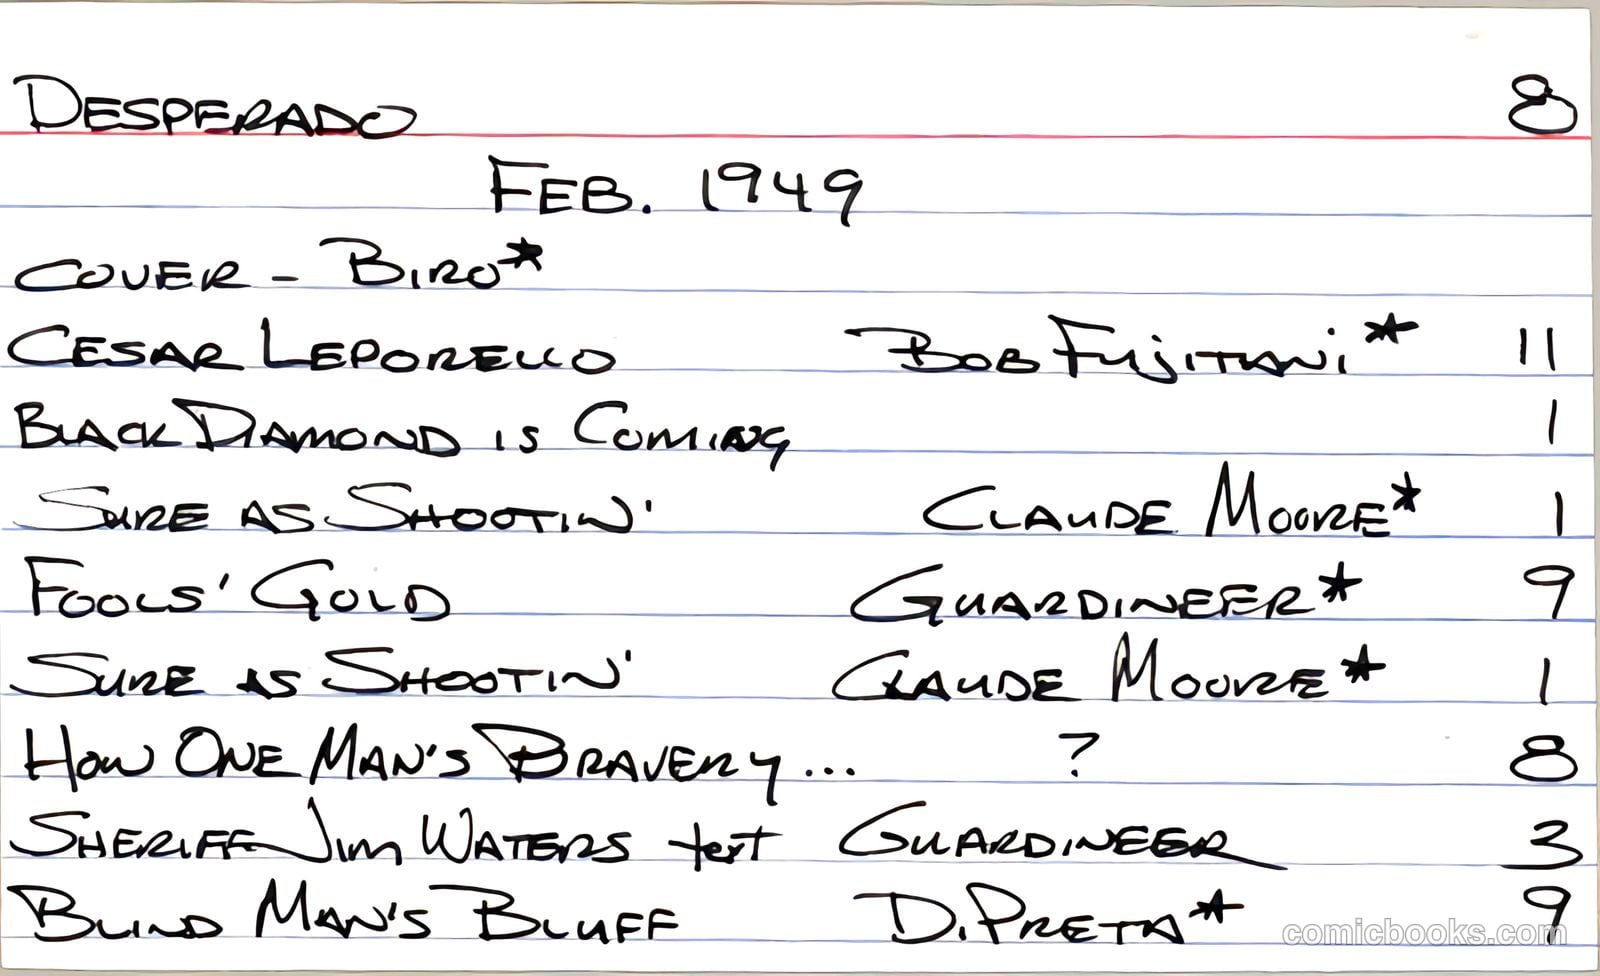 DESPERADO 8
FEB. 1949
COVER - BIRO*
CESAR LEPORELLO BOB FUJITANI* 11
BLACK DIAMOND IS COMING 1
SURE AS SHOOTIN' CLAUDE MOORE* 1
FOOLS' GOLD GUARDINEER* 9
SURE AS SHOOTIN' CLAUDE MOORE* 1
HOW ONE MAN'S BRAVERY... ? 8
SHERIFF JIM WATERS text GUARDINEER 3
BLIND MAN'S BLUFF DiPRETA* 9
comicbooks.com